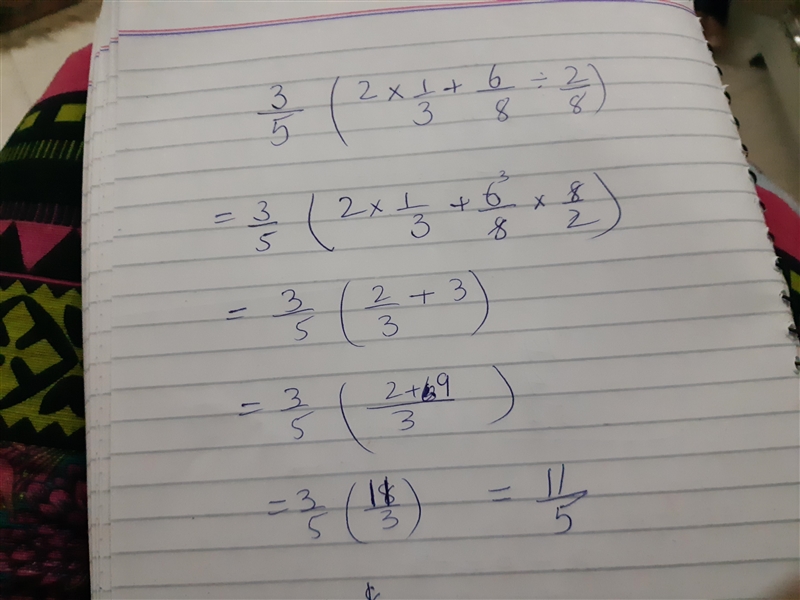 3/5 ( 2 × 1/3 + 6/8 ÷ 2/8 )
= 3/5 ( 2 × 1/3 + 6³/8 × 8/2 )
= 3/5 ( 2/3 + 3 )
= 3/5 ( 2+9/3 )
= 3/5 ( 11/3 ) = 11/5